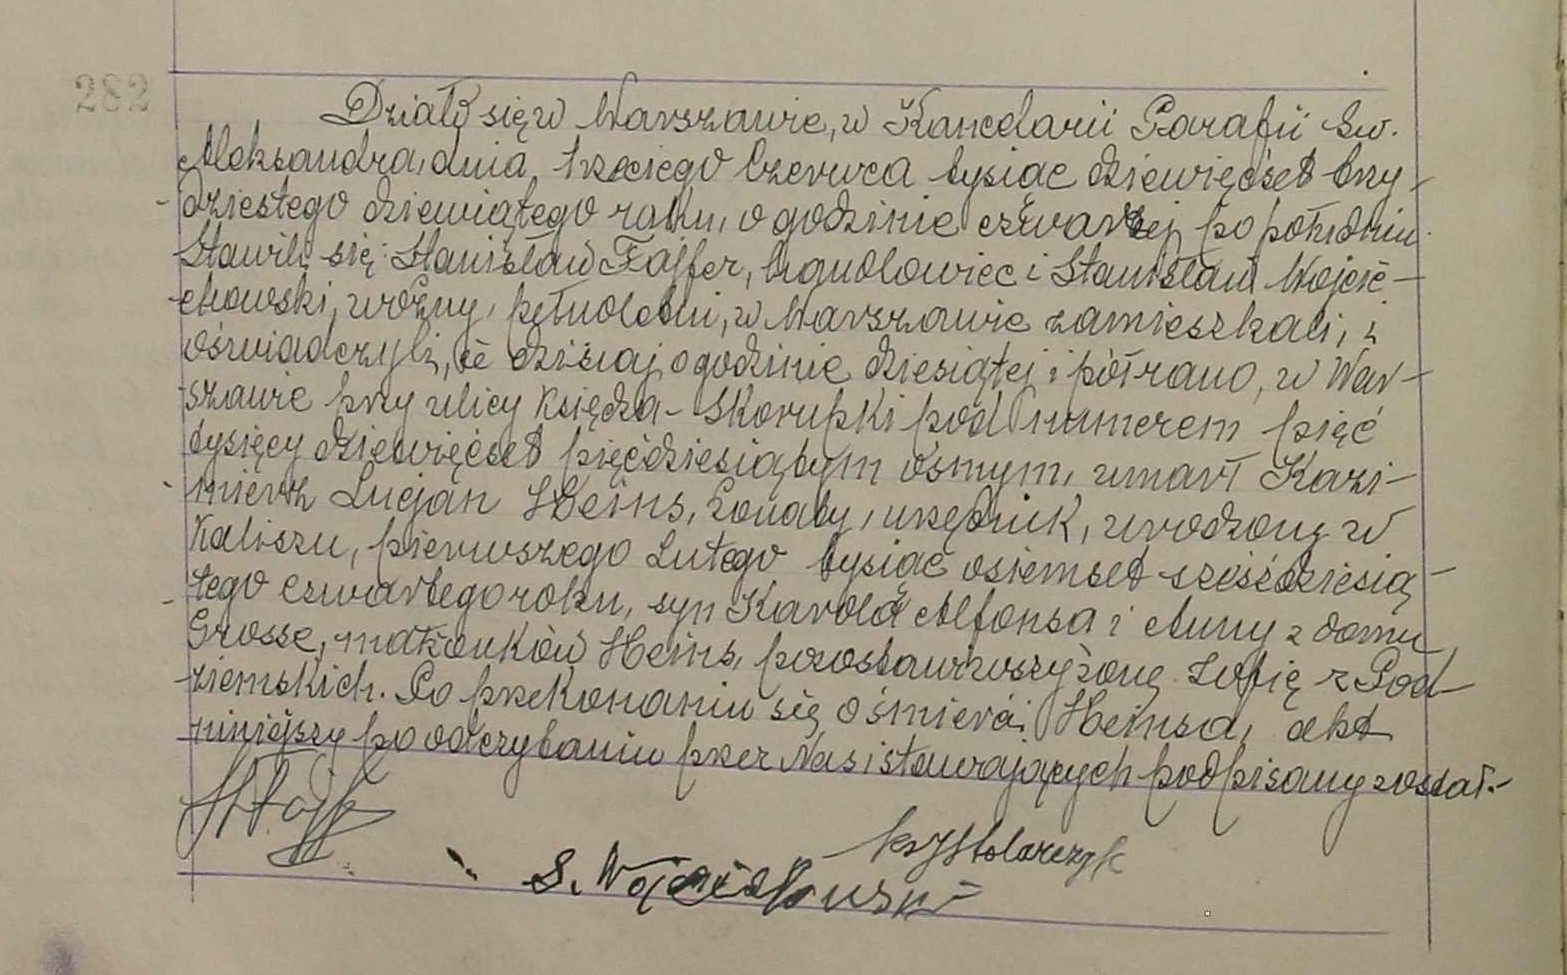 282
Działo się w Warszawie, w Kancelarii Parafii Św.
Aleksandra, dnia trzeciego Czerwca tysiąc dziewięćset trzy-
dziestego dziewiątego roku, o godzinie czwartej po południu.
Stawili się: Stanisław Fajfer, i Stanisław Wojcie-
chowski, woźny, pełnoletni, w Warszawie zamieszkali, i
oświadczyli, że dzisiaj o godzinie dziesiątej i pół rano, w War-
szawie przy ulicy Księdza-Skorupki pod numerem pięć
tysięcy dziewięćset pięćdziesiątym ósmym, umarł Kazi-
mierz Lucjan Heins, żonaty, urzędnik, urodzony w
Kaliszu, pierwszego Lutego tysiąc osiemset sześćdziesią-
tego czwartego roku, syn Karola Alfonsa i Anny z domu
Grosse, małżonków Heins, pozostawiwszy żonę Zofię z Pod-
ziemskich. Po przekonaniu się o śmierci Heinsa, akt
niniejszy po odczytaniu przez Nas i stawających podpisany został.-
Ks J Stolarczyk
S. Wojciechowski